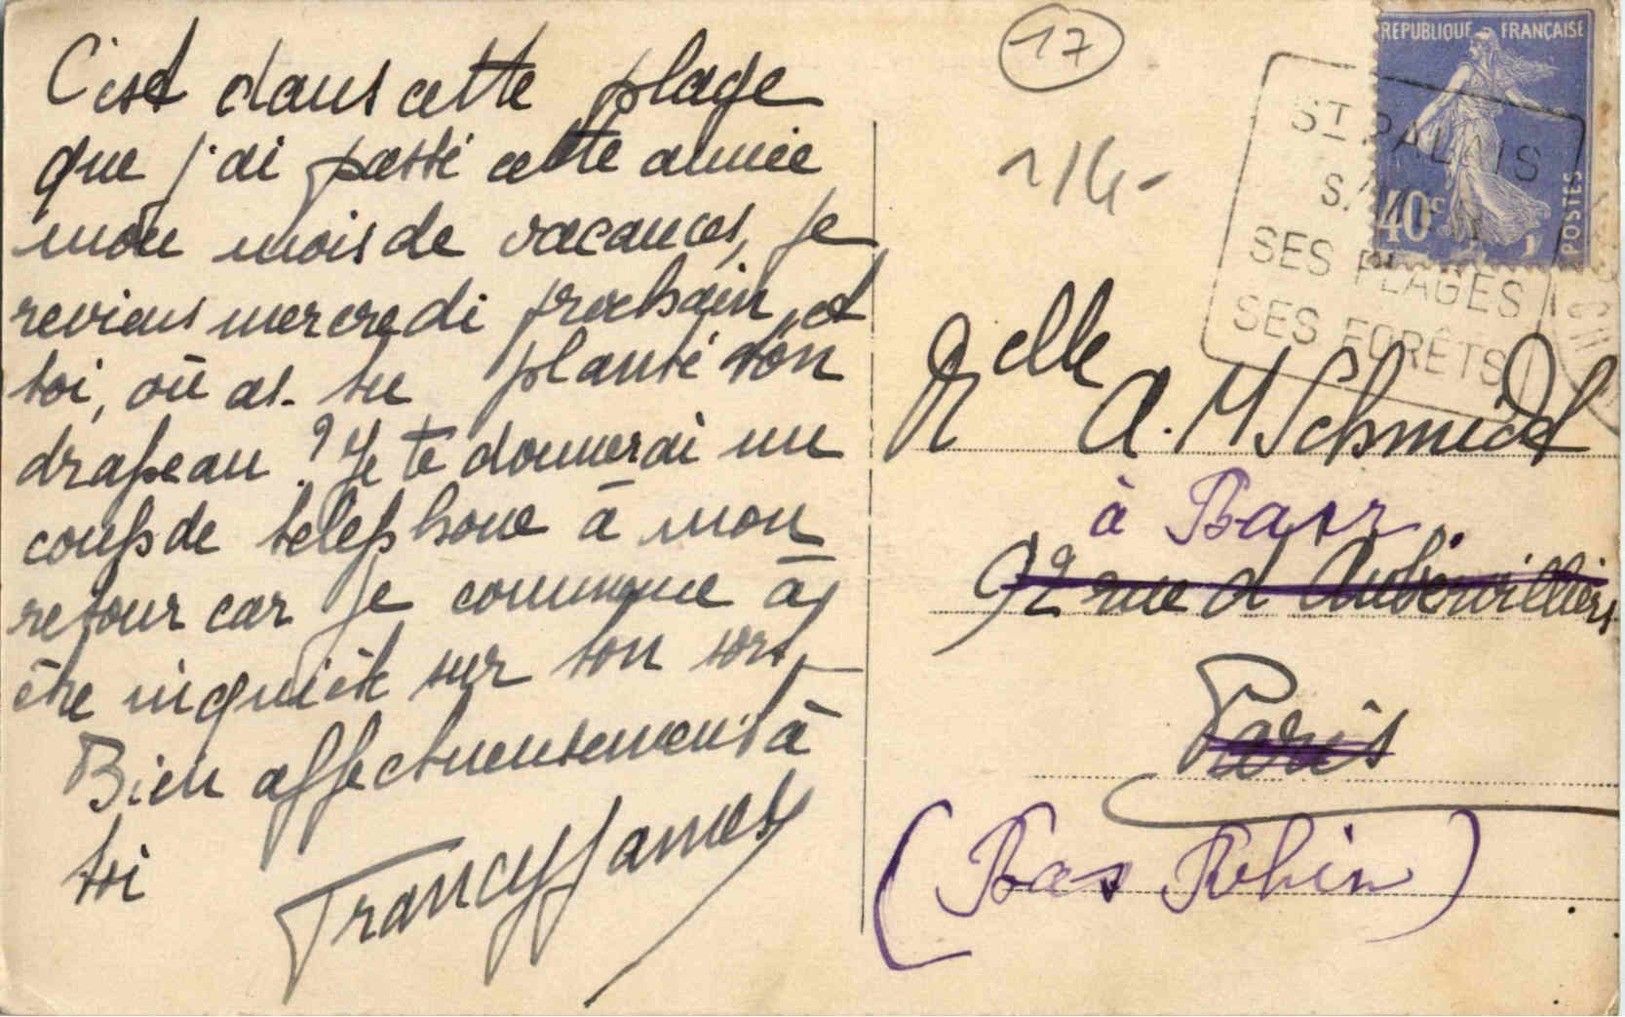 C'est dans cette plage
que j'ai passé cette année
mon mois de vacances, je
reviens mercredi prochain, et
toi, où as-tu planté ton
drapeau ? Je te donnerai un
coup de telephone à mon
retour car je commence à
être inquiète sur ton sort,
Bien affectueusement à
toi
Francy James
17
1/4-
REPUBLIQUE FRANÇAISE
40c
POSTES
ST PALAIS
S/
SES PLAGES
SES FORÊTS
Melle A. M Schmidt
à Barr
92 rue d'Aubervilliers
Paris
(Bas Rhin)